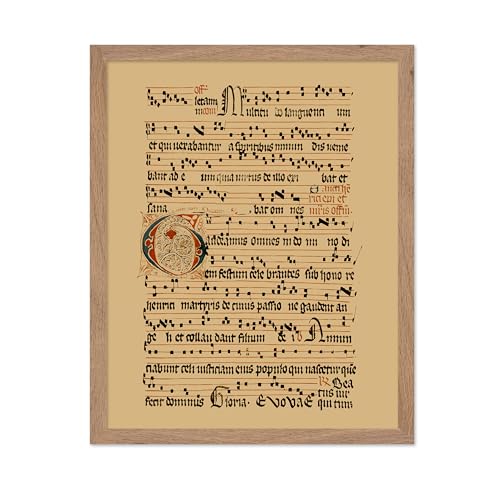 Off.
letam Multitu lo languenti um
mcom
et qui uexabantur a spiritibus inmun dis ueme
bant ad e um quia uirtus de illo exi bat et
Sancti hē
rici epi et
sana bat om nes miris offm.
Gaudeamus omnes in do mi no di
em festum cele brantes sub hono re
henrici martyris de cuius passio ne gaudent an
ge li et collau dant filium de i Annun
ciabunt celi iusticiam eius populo qui nascetur que
fecit dominus Gloria. EVOVAE
℟ Bea
tus uir
qui tim